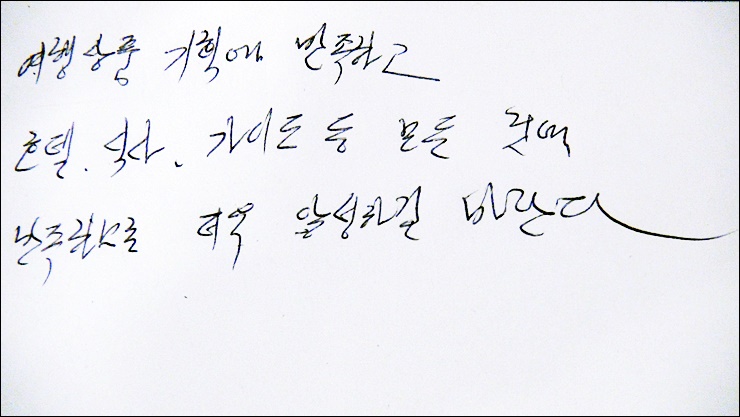 여행상품 기획에 만족하고
호텔. 식사. 가이드 등 모든 것에
만족함으로 더욱 왕성하길 바란다